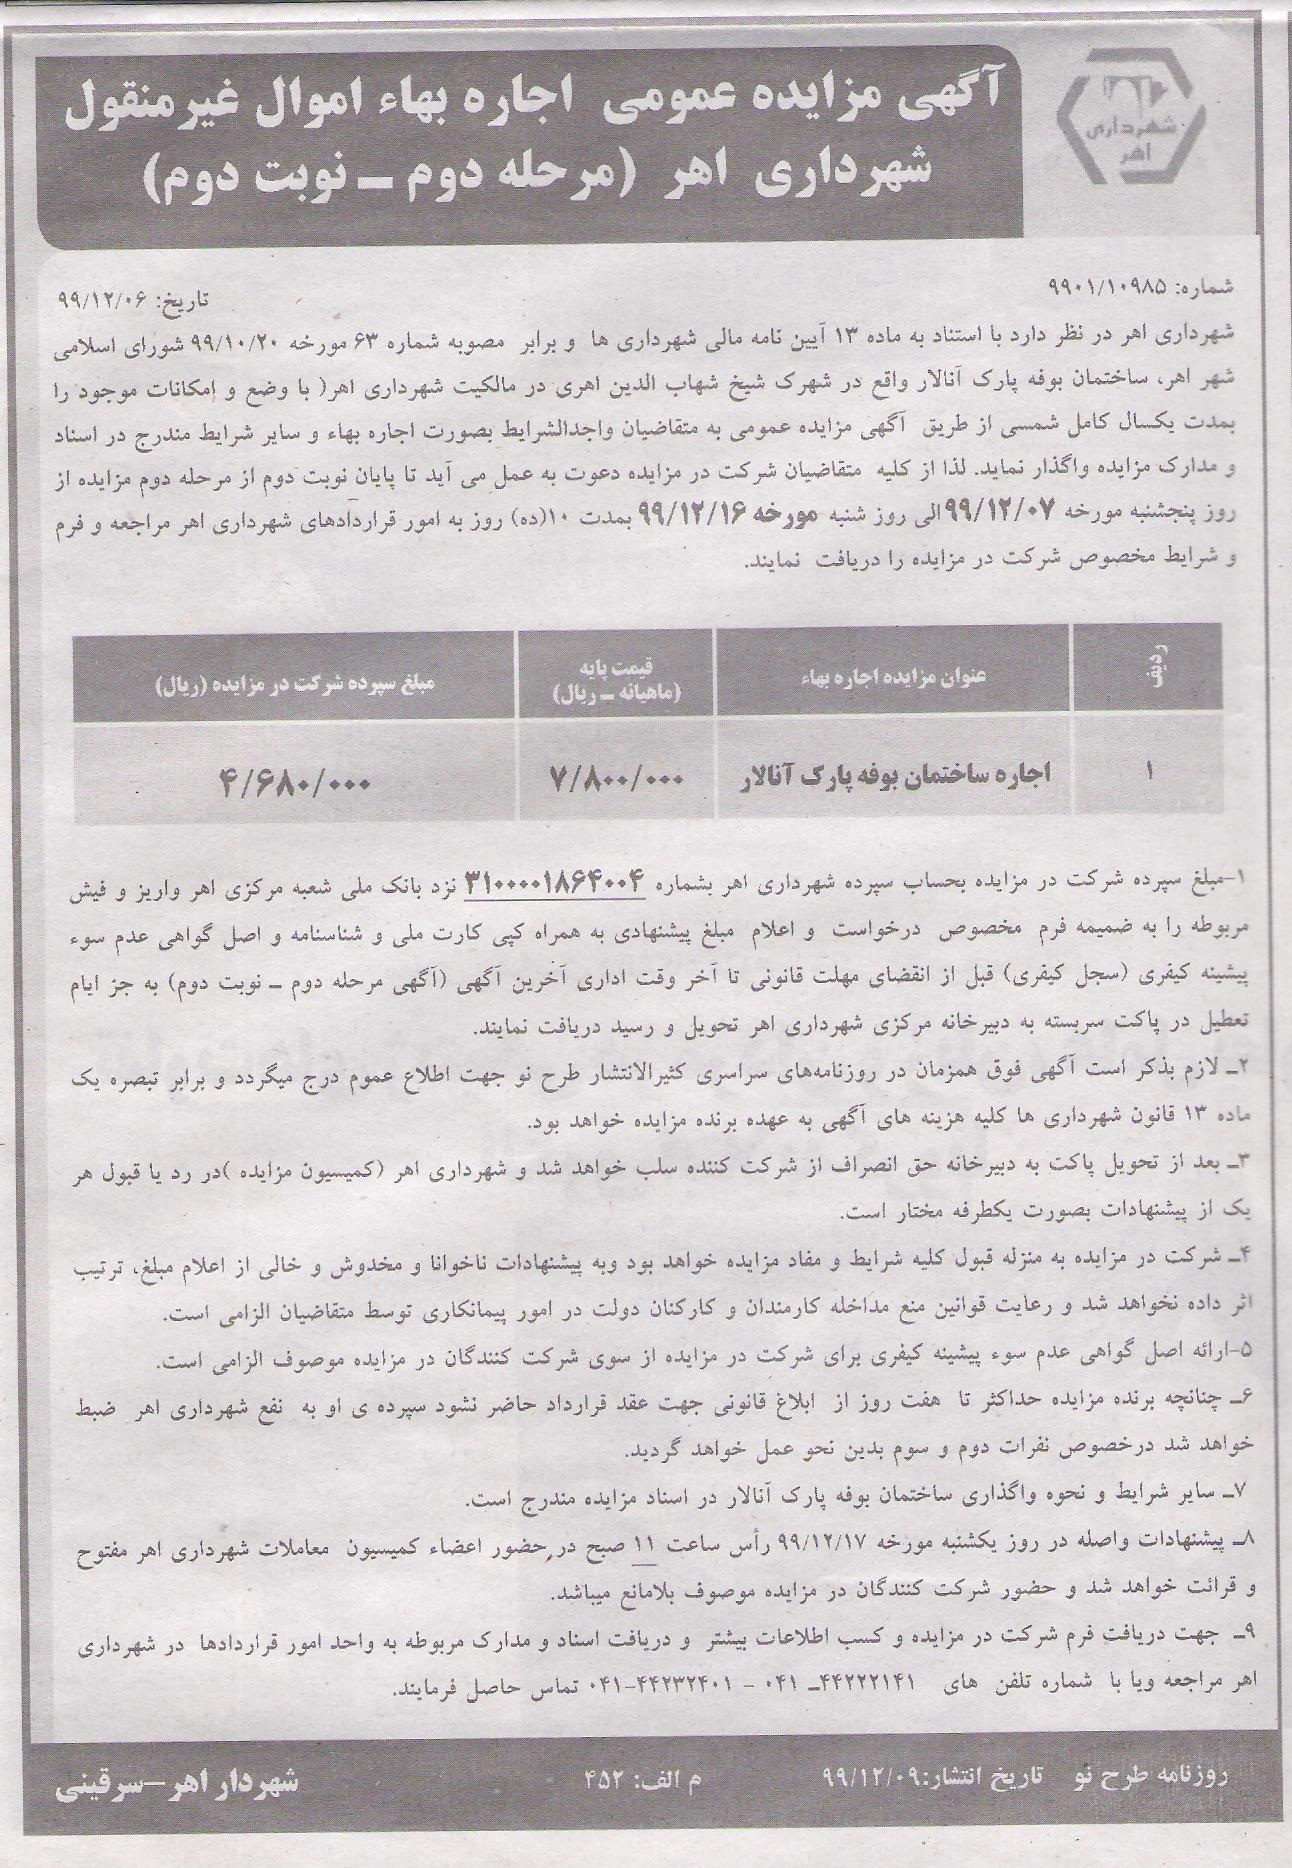 شهرداری
اهر
آگهی مزایده عمومی اجاره بهاء اموال غیرمنقول
شهرداری اهر (مرحله دوم ـ نوبت دوم)
شماره: ۹۹۰۱/۱۰۹۸۵
تاریخ: ۹۹/۱۲/۰۶
شهرداری اهر در نظر دارد با استناد به ماده ۱۳ آیین نامه مالی شهرداری ها و برابر مصوبه شماره ۶۳ مورخه ۹۹/۱۰/۲۰ شورای اسلامی
شهر اهر، ساختمان بوفه پارک آنالار واقع در شهرک شیخ شهاب الدین اهری در مالکیت شهرداری اهر( با وضع و امکانات موجود را
بمدت یکسال کامل شمسی از طریق آگهی مزایده عمومی به متقاضیان واجدالشرایط بصورت اجاره بهاء و سایر شرایط مندرج در اسناد
و مدارک مزایده واگذار نماید. لذا از کلیه متقاضیان شرکت در مزایده دعوت به عمل می آید تا پایان نوبت دوم از مرحله دوم مزایده از
روز پنجشنبه مورخه ۹۹/۱۲/۰۷الی روز شنبه مورخه ۹۹/۱۲/۱۶ بمدت ۱۰(ده) روز به امور قراردادهای شهرداری اهر مراجعه و فرم
و شرایط مخصوص شرکت در مزایده را دریافت نمایند.
ردیف
عنوان مزایده اجاره بهاء
قیمت پایه
(ماهیانه ـ ریال)
مبلغ سپرده شرکت در مزایده (ریال)
۱
اجاره ساختمان بوفه پارک آنالار
۷/۸۰۰/۰۰۰
۴/۶۸۰/۰۰۰
۱-مبلغ سپرده شرکت در مزایده بحساب سپرده شهرداری اهر بشماره ۳۱۰۰۰۰۱۸۶۴۰۰۴ نزد بانک ملی شعبه مرکزی اهر واریز و فیش
مربوطه را به ضمیمه فرم مخصوص درخواست و اعلام مبلغ پیشنهادی به همراه کپی کارت ملی و شناسنامه و اصل گواهی عدم سوء
پیشینه کیفری (سجل کیفری) قبل از انقضای مهلت قانونی تا آخر وقت اداری آخرین آگهی (آگهی مرحله دوم ـ نوبت دوم) به جز ایام
تعطیل در پاکت سربسته به دبیرخانه مرکزی شهرداری اهر تحویل و رسید دریافت نمایند.
۲ـ لازم بذکر است آگهی فوق همزمان در روزنامه‌های سراسری کثیرالانتشار طرح نو جهت اطلاع عموم درج میگردد و برابر تبصره یک
ماده ۱۳ قانون شهرداری ها کلیه هزینه های آگهی به عهده برنده مزایده خواهد بود.
۳ـ بعد از تحویل پاکت به دبیرخانه حق انصراف از شرکت کننده سلب خواهد شد و شهرداری اهر (کمیسیون مزایده )در رد یا قبول هر
یک از پیشنهادات بصورت یکطرفه مختار است.
۴ـ شرکت در مزایده به منزله قبول کلیه شرایط و مفاد مزایده خواهد بود وبه پیشنهادات ناخوانا و مخدوش و خالی از اعلام مبلغ، ترتیب
اثر داده نخواهد شد و رعایت قوانین منع مداخله کارمندان و کارکنان دولت در امور پیمانکاری توسط متقاضیان الزامی است.
۵-ارائه اصل گواهی عدم سوء پیشینه کیفری برای شرکت در مزایده از سوی شرکت کنندگان در مزایده موصوف الزامی است.
۶ـ چنانچه برنده مزایده حداکثر تا هفت روز از ابلاغ قانونی جهت عقد قرارداد حاضر نشود سپرده ی او به نفع شهرداری اهر ضبط
خواهد شد درخصوص نفرات دوم و سوم بدین نحو عمل خواهد گردید.
۷ـ سایر شرایط و نحوه واگذاری ساختمان بوفه پارک آنالار در اسناد مزایده مندرج است.
۸ـ پیشنهادات واصله در روز یکشنبه مورخه ۹۹/۱۲/۱۷ رأس ساعت ۱۱ صبح در حضور اعضاء کمیسیون معاملات شهرداری اهر مفتوح
و قرائت خواهد شد و حضور شرکت کنندگان در مزایده موصوف بلامانع میباشد.
۹ـ جهت دریافت فرم شرکت در مزایده و کسب اطلاعات بیشتر و دریافت اسناد و مدارک مربوطه به واحد امور قراردادها در شهرداری
اهر مراجعه ویا با شماره تلفن های ۴۴۲۲۲۱۴۱ـ ۰۴۱ - ۴۴۲۳۲۴۰۱-۰۴۱ تماس حاصل فرمایند.
روزنامه طرح نو تاریخ انتشار:۹۹/۱۲/۰۹
م الف: ۴۵۲
شهردار اهر–سرقینی